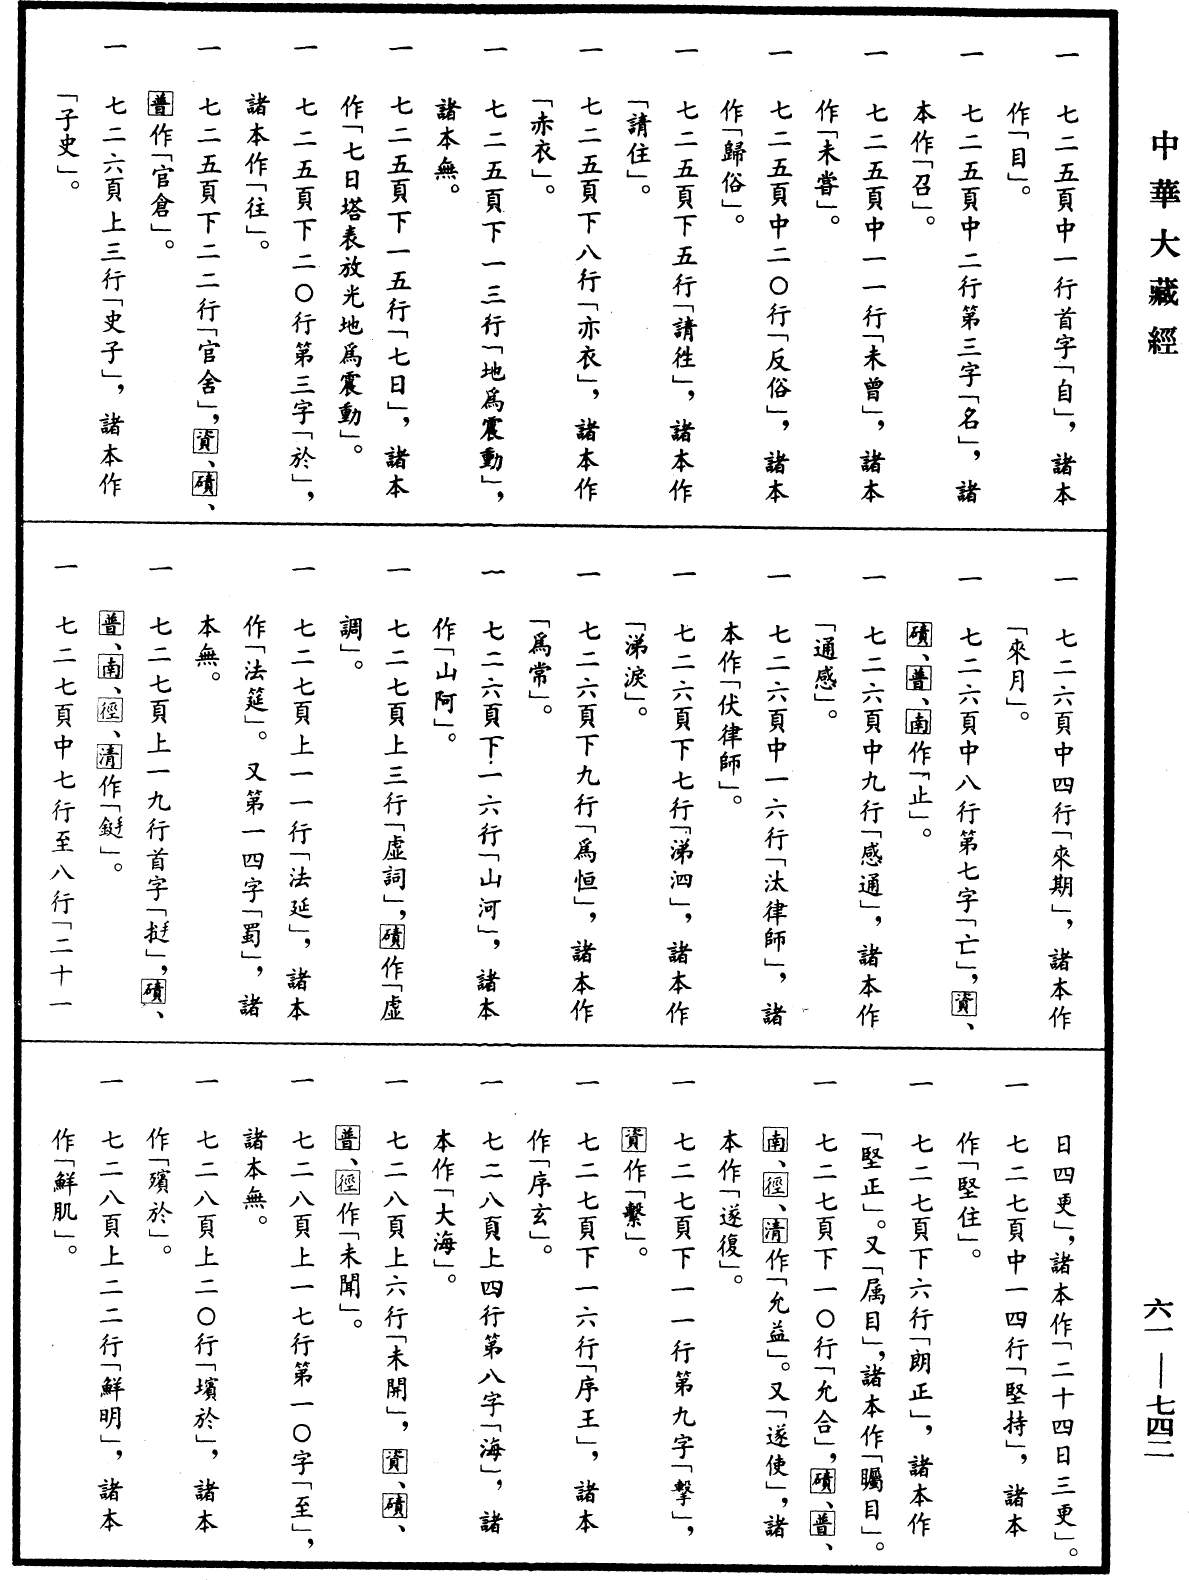 中華大藏經
一　七二五頁中一行首字「自」，諸本
作「目」。
一　七二五頁中二行第三字「名」，諸
本作「召」。
一　七二五頁中一一行「未曾」，諸本
作「未嘗」。
一　七二五頁中二〇行「反俗」，諸本
作「歸俗」。
一　七二五頁下五行「請徃」，諸本作
「請住」。
一　七二五頁下八行「亦衣」，諸本作
「赤衣」。
一　七二五頁下一三行「地爲震動」，
諸本無。
一　七二五頁下一五行「七日」，諸本
作「七日塔表放光地爲震動」。
一　七二五頁下二〇行第三字「於」，
諸本作「往」。
一　七二五頁下二二行「官舍」，資、磧、
普作「官倉」。
一　七二六頁上三行「史子」，諸本作
「子史」。
一　七二六頁中四行「來期」，諸本作
「來月」。
一　七二六頁中八行第七字「亡」，資、
磧、普、南作「止」。
一　七二六頁中九行「感通」，諸本作
「通感」。
一　七二六頁中一六行「汰律師」，諸
本作「伏律師」。
一　七二六頁下七行「涕泗」，諸本作
「涕淚」。
一　七二六頁下九行「爲恒」，諸本作
「爲常」。
一　七二六頁下一六行「山河」，諸本
作「山阿」。
一　七二七頁上三行「虛詞」，磧作「虛
調」。
一　七二七頁上一一行「法延」，諸本
作「法筵」。又第一四字「蜀」，諸
本無。
一　七二七頁上一九行首字「挻」，磧、
普、南、徑、清作「鋌」。
一　七二七頁中七行至八行「二十一
日四更」，諸本作「二十四日三更」。
一　七二七頁中一四行「堅持」，諸本
作「堅住」。
一　七二七頁下六行「朗正」，諸本作
「堅正」。又「属目」，諸本作「矚目」。
一　七二七頁下一〇行「允合」，磧、普、
南、徑、清作「允益」。又「遂使」，諸
本作「遂復」。
一　七二七頁下一一行第九字「擊」，
資作「繫」。
一　七二七頁下一六行「序王」，諸本
作「序玄」。
一　七二八頁上四行第八字「海」，諸
本作「大海」。
一　七二八頁上六行「未開」，資、磧、
普、徑作「未聞」。
一　七二八頁上一七行第一〇字「至」，
諸本無。
一　七二八頁上二〇行「壙於」，諸本
作「殯於」。
一　七二八頁上二二行「鮮明」，諸本
作「鮮肌」。
六一——七四二